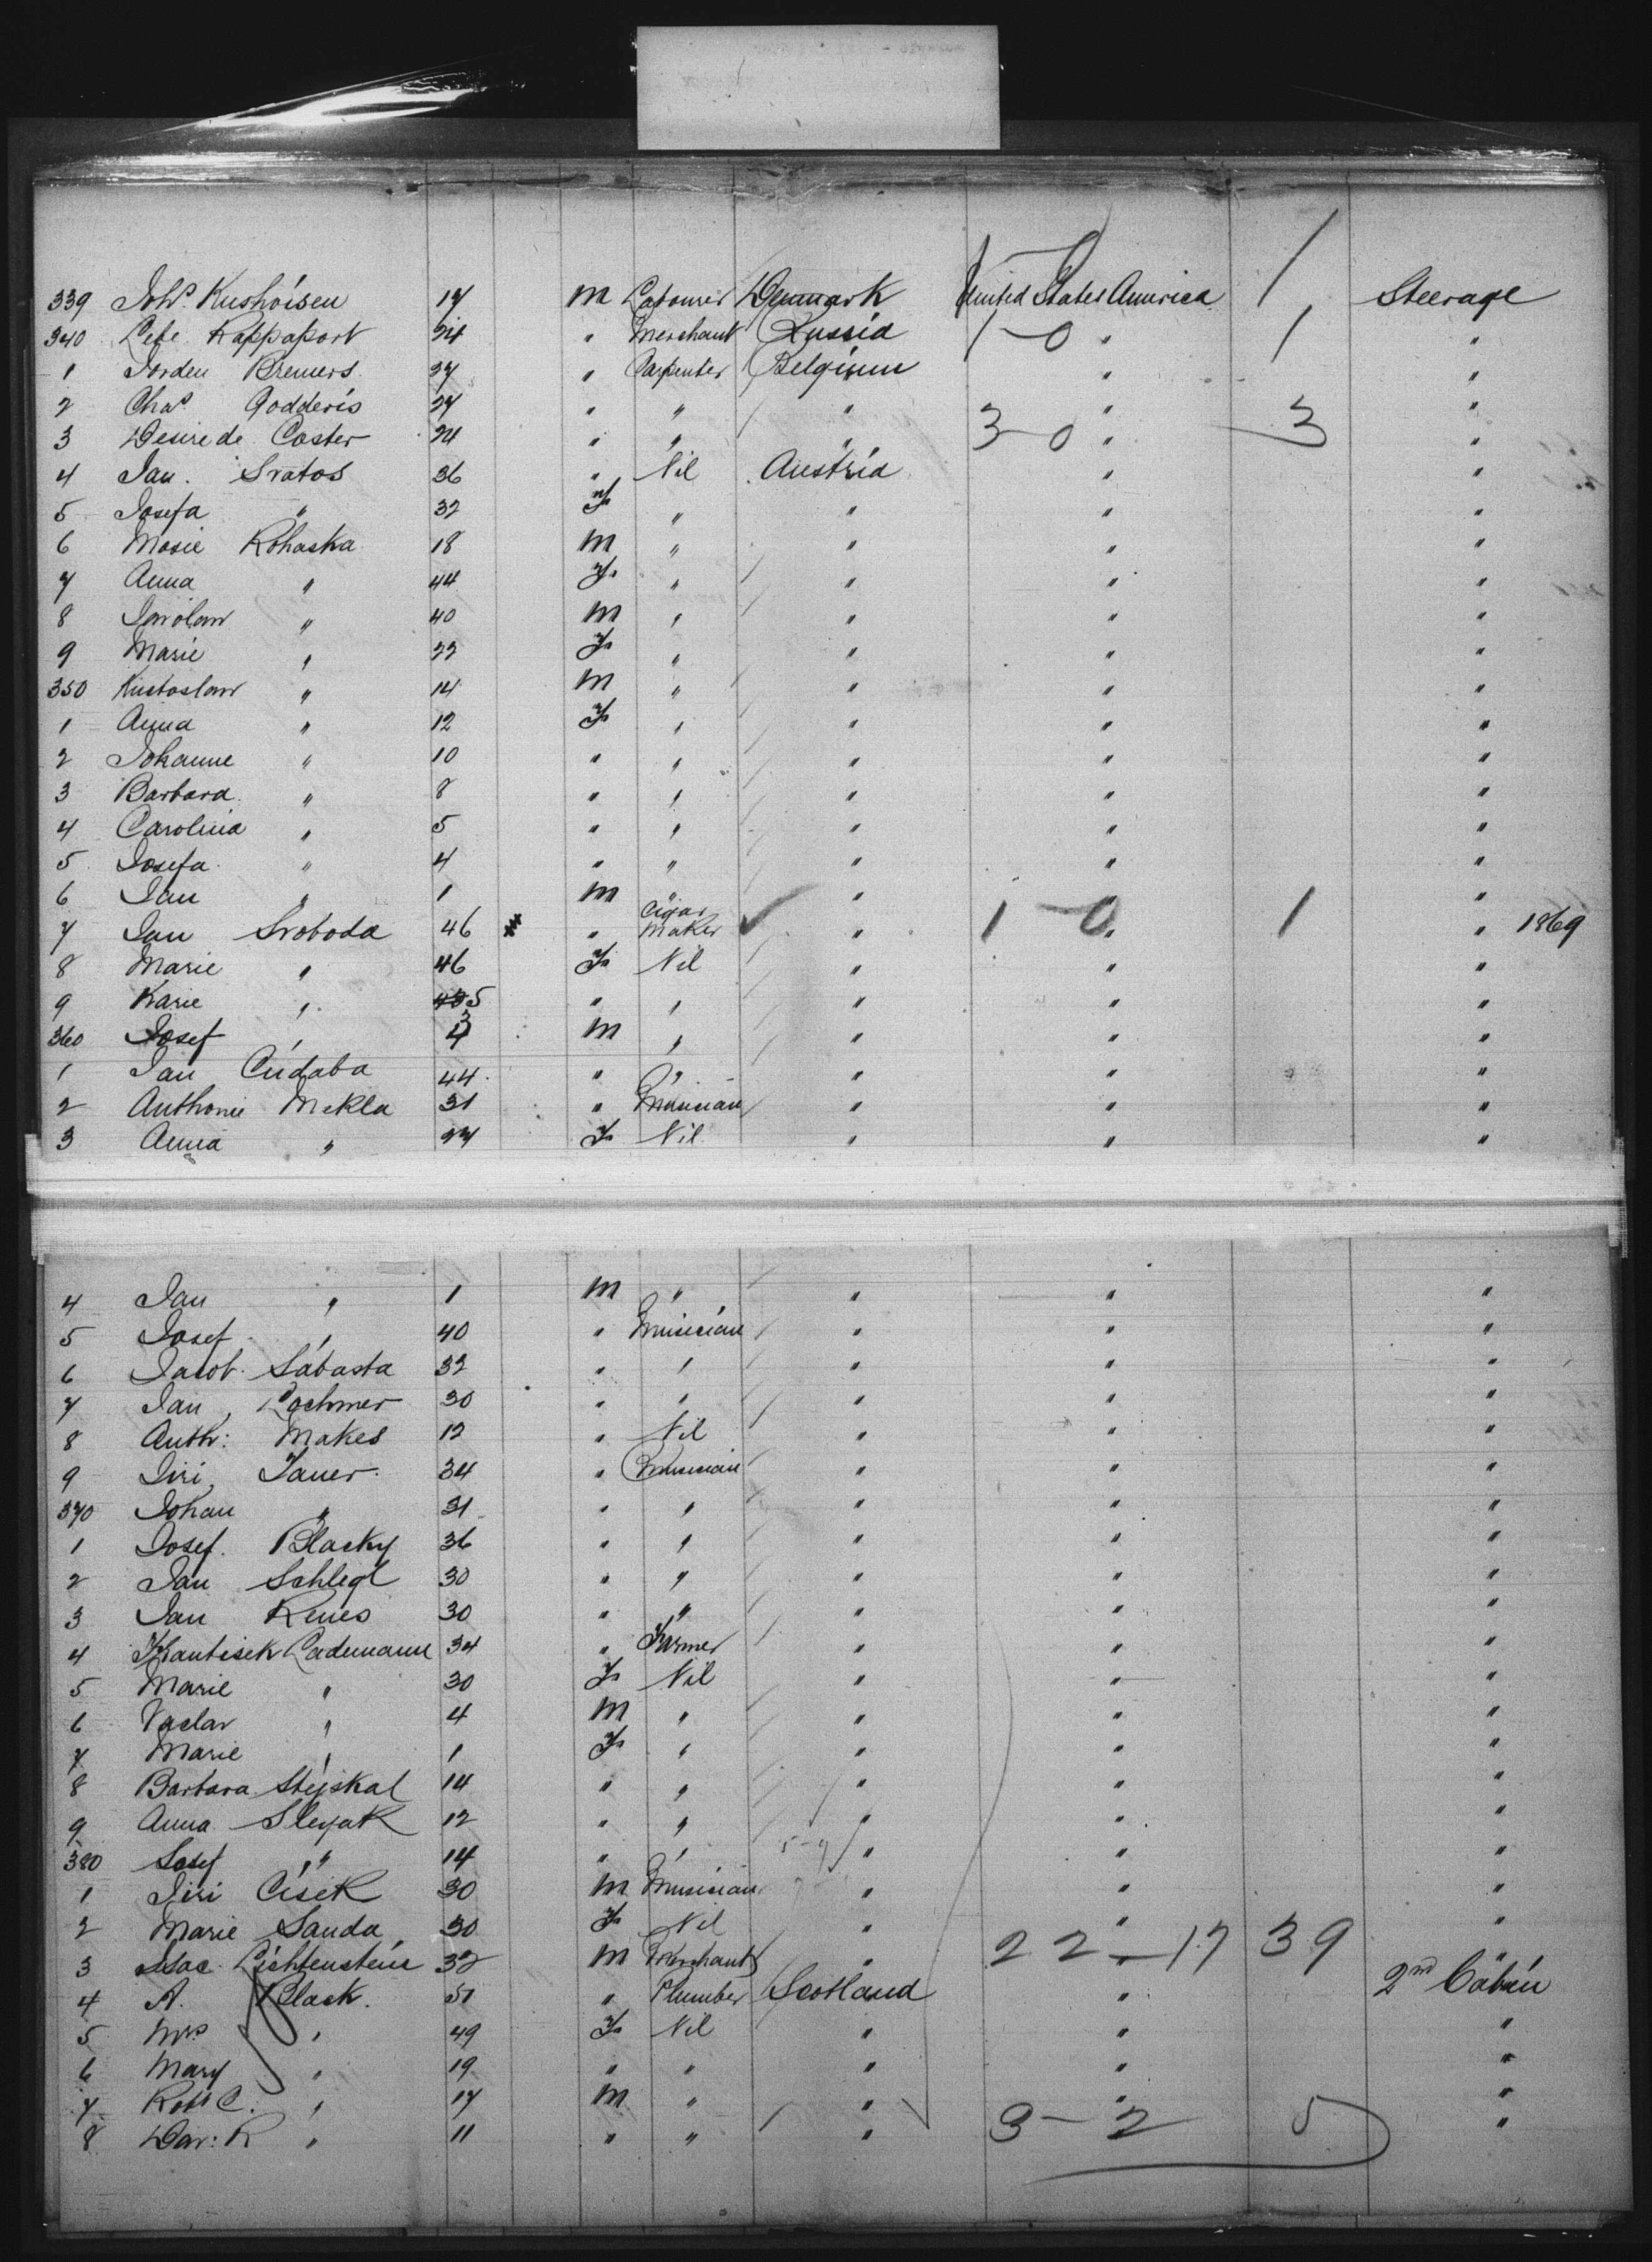 339 Joh.s Kushóisen 17 M Labourer Denmark United States America 1 Steerage
340 Lebe Rappaport 24 " Merchant Russia 1-0 " 1 "
1 Jorden Bremers 27 " Carpenter Belgium " "
2 Chas Godderis 27 " " " " "
3 Desire de Coster 24 " " " 3-0 " 3 "
4 Jan. Svatos 36 " Nil Austria " "
5 Josefa " 32 F " " " "
6 Mosie Kohaska 18 M " " " "
7 Anna " 44 F " " " "
8 " 40 M " " " "
9 Marie " 22 F " " " "
350 " 14 M " " " "
1 Anna " 12 F " " " "
2 Johanne " 10 " " " " "
3 Barbara " 8 " " " " "
4 Carolina " 5 " " " " "
5 Josefa " 4 " " " " "
6 Jan " 1 M " " " "
7 Jan Svoboda 46 " Cigar Maker " 1-0 " 1 " 1869
8 Marie " 46 F Nil " " "
9 Karie " 5 " " " " "
360 Josef " 3 M " " " "
1 Jan Cudaba 44 " " " " "
2 Anthonie Mekla 31 " Musician " " "
3 Anna " 27 F Nil " " "
4 Jan " 1 M " " " "
5 Josef " 40 " Musician " " "
6 Jacob Sabasta 32 " " " " "
7 Jan Lochmer 30 " " " " "
8 Anth: Makes 12 " Nil " " "
9 Jiri Tauer 34 " Musician " " "
370 Johan " 31 " " " " "
1 Josef Blacky 36 " " " " "
2 Jan Schlegl 30 " " " " "
3 Jan Renes 30 " " " " "
4 Frantisek Lademann 34 " Farmer " " "
5 Marie " 30 F Nil " " "
6 Vaclav " 4 M " " " "
7 Marie " 1 F " " " "
8 Barbara Stejskal 14 " " " " "
9 Anna Slegak 12 " " " " "
380 Josef " 14 " " 5-9 " " "
1 Jiri Cisek 30 M Musician " " "
2 Marie Sanda 30 F Nil " " "
3 Isac Lichtenstein 32 M Merchant " 22-17 39
4 A. Black. 51 " Plumber Scotland " 2nd Cabin
5 Mrs " 49 F Nil " " "
6 Mary " 19 " " " " "
7 Robt C. " 17 M " " " "
8 Dav: R " 11 " " " 3-2 5 "